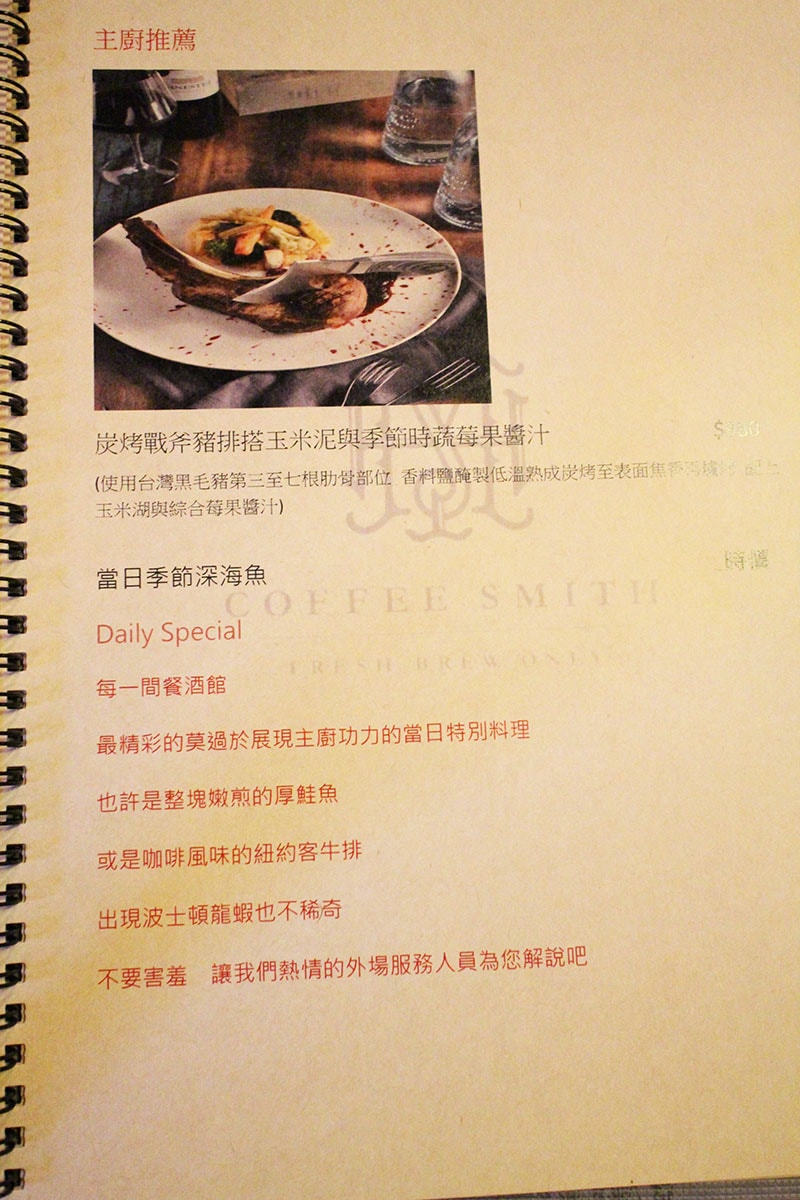 主廚推薦
炭烤戰斧豬排搭玉米泥與季節時蔬莓果醬汁
(使用台灣黑毛豬第三至七根肋骨部位 香料鹽醃製低溫熟成炭烤至表面焦香
玉米湖與綜合莓果醬汁)
當日季節深海魚
COFFEE SMITH
Daily Special
FRESH BREW ONLY
每一間餐酒館
最精彩的莫過於展現主廚功力的當日特別料理
也許是整塊嫩煎的厚鮭魚
或是咖啡風味的紐約客牛排
出現波士頓龍蝦也不稀奇
不要害羞 讓我們熱情的外場服務人員為您解說吧